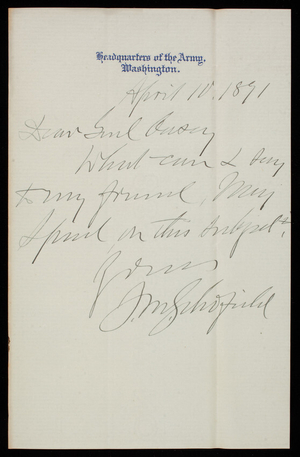 Headquarters of the Army,
Washington.
April 10. 1891
Dear Genl Casey
What can I say
to my friend, Mary
on this subject.
Yours
J.M. Schofield